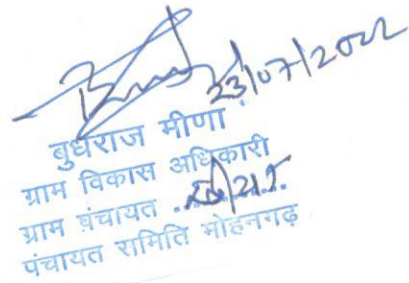 23/07/2022
बुधराज मीणा
ग्राम विकास अधिकारी
ग्राम पंचायत ............
पंचायत समिति मोहनगढ़